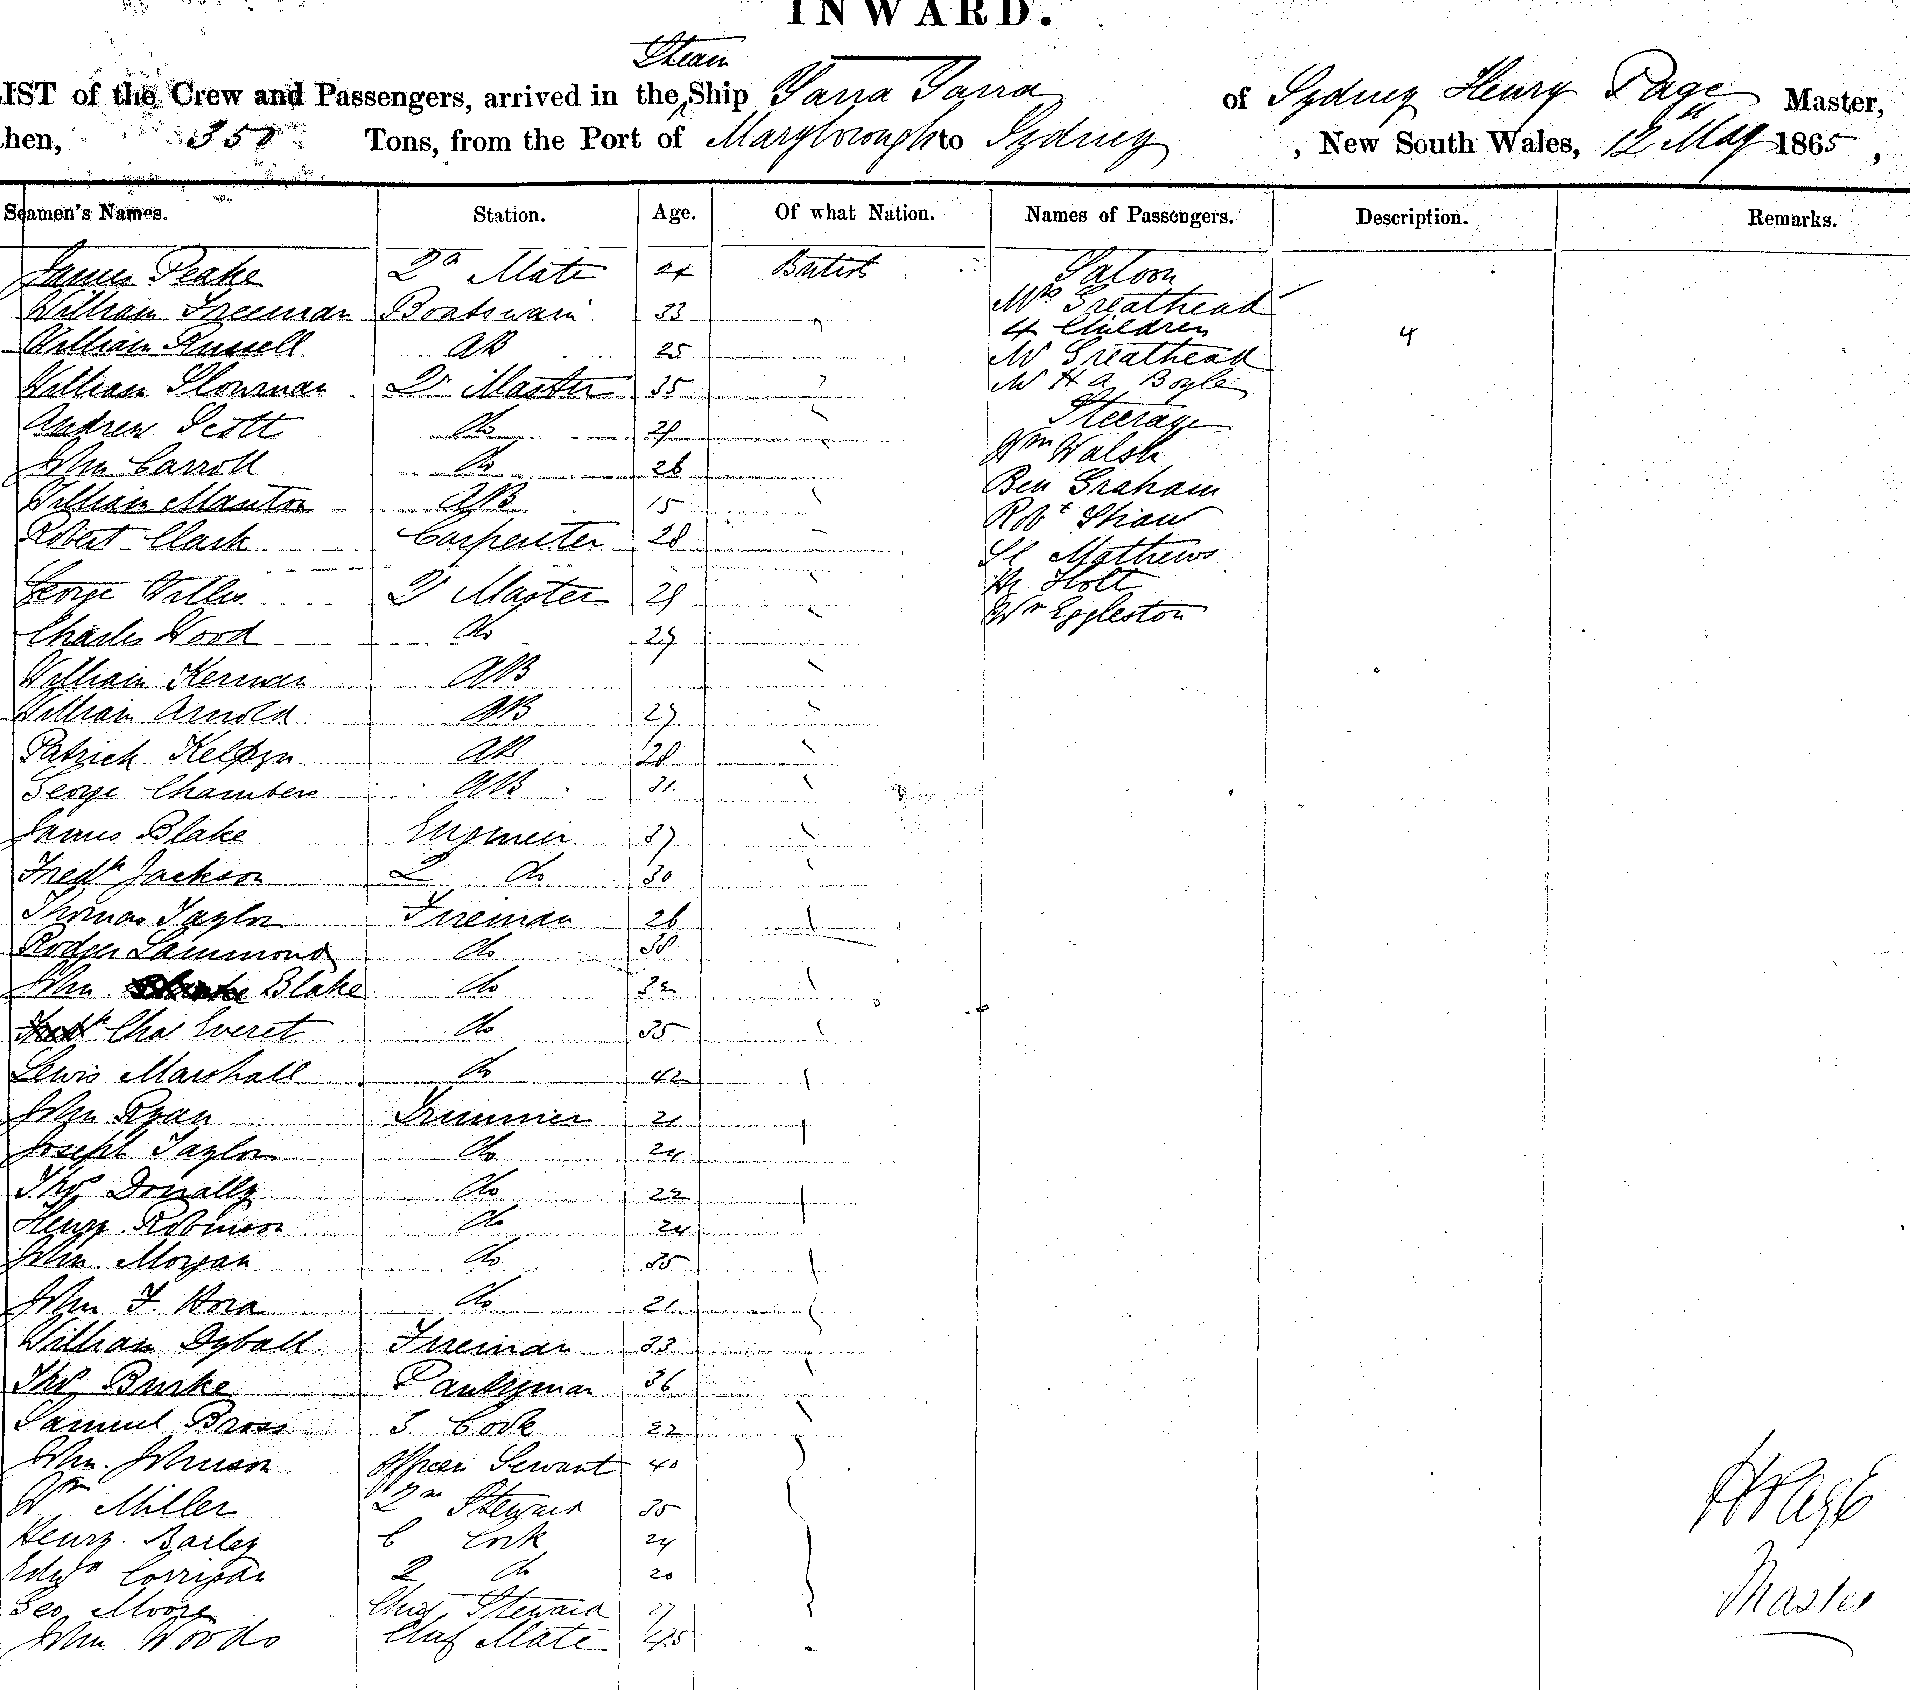 INWARD.
Steam
LIST of the Crew and Passengers, arrived in the Ship Yarra Yarra of Sydney Henry Page Master,
hen, 350 Tons, from the Port of Maryborough to Sydney , New South Wales, 12 May 1865,
Seamen's Names. Station. Age. Of what Nation. Names of Passengers. Description. Remarks.
James Peake 2d Mate 24 British Saloon
William Freeman Boatswain 33 " Mrs Greathead
4 Children 4
William Russell AB 25 Mr Greathead
William Plowman Qr Master 35 " Mr H A Boyle
Steerage
Andrew Scott do 29 Wm Walsh
John Carroll do 26 Ben Graham
William Manton AB 15 Robt Shaw
Robert Clark Carpenter 28 Sl Mathews
Holt
George Willis Qr Master 29 Wm Eggleston
Charles Wood do 29
William Kerman AB
William Arnold AB 27
Patrick AB 28
George Chambers AB 31
James Blake Engineer 37
Fredk Jackson 2 do 30
Thomas Taylor Fireman 26
Rodger Lammond do 38
John Blake do 32
Chas Everet do 35
Lewis Marshall do 42
John Ryan Trimmer 21
Joseph Taylor do 24
Thos Donally do 22
Henry Robinson do 24
John Morgan do 35
John F Hora do 21
William Dyball Fireman 33
Thos Burke Pantryman 36
Samuel Bross 3 Cook 22
John Johnson Officers Servant 40
Wm Miller 2nd Steward 35
Henry Barley C Cook 24
Edwd Corrigan 2 do 20
Geo Moore Chief Steward 27
John Woods Chief Mate 45
H Page
Master